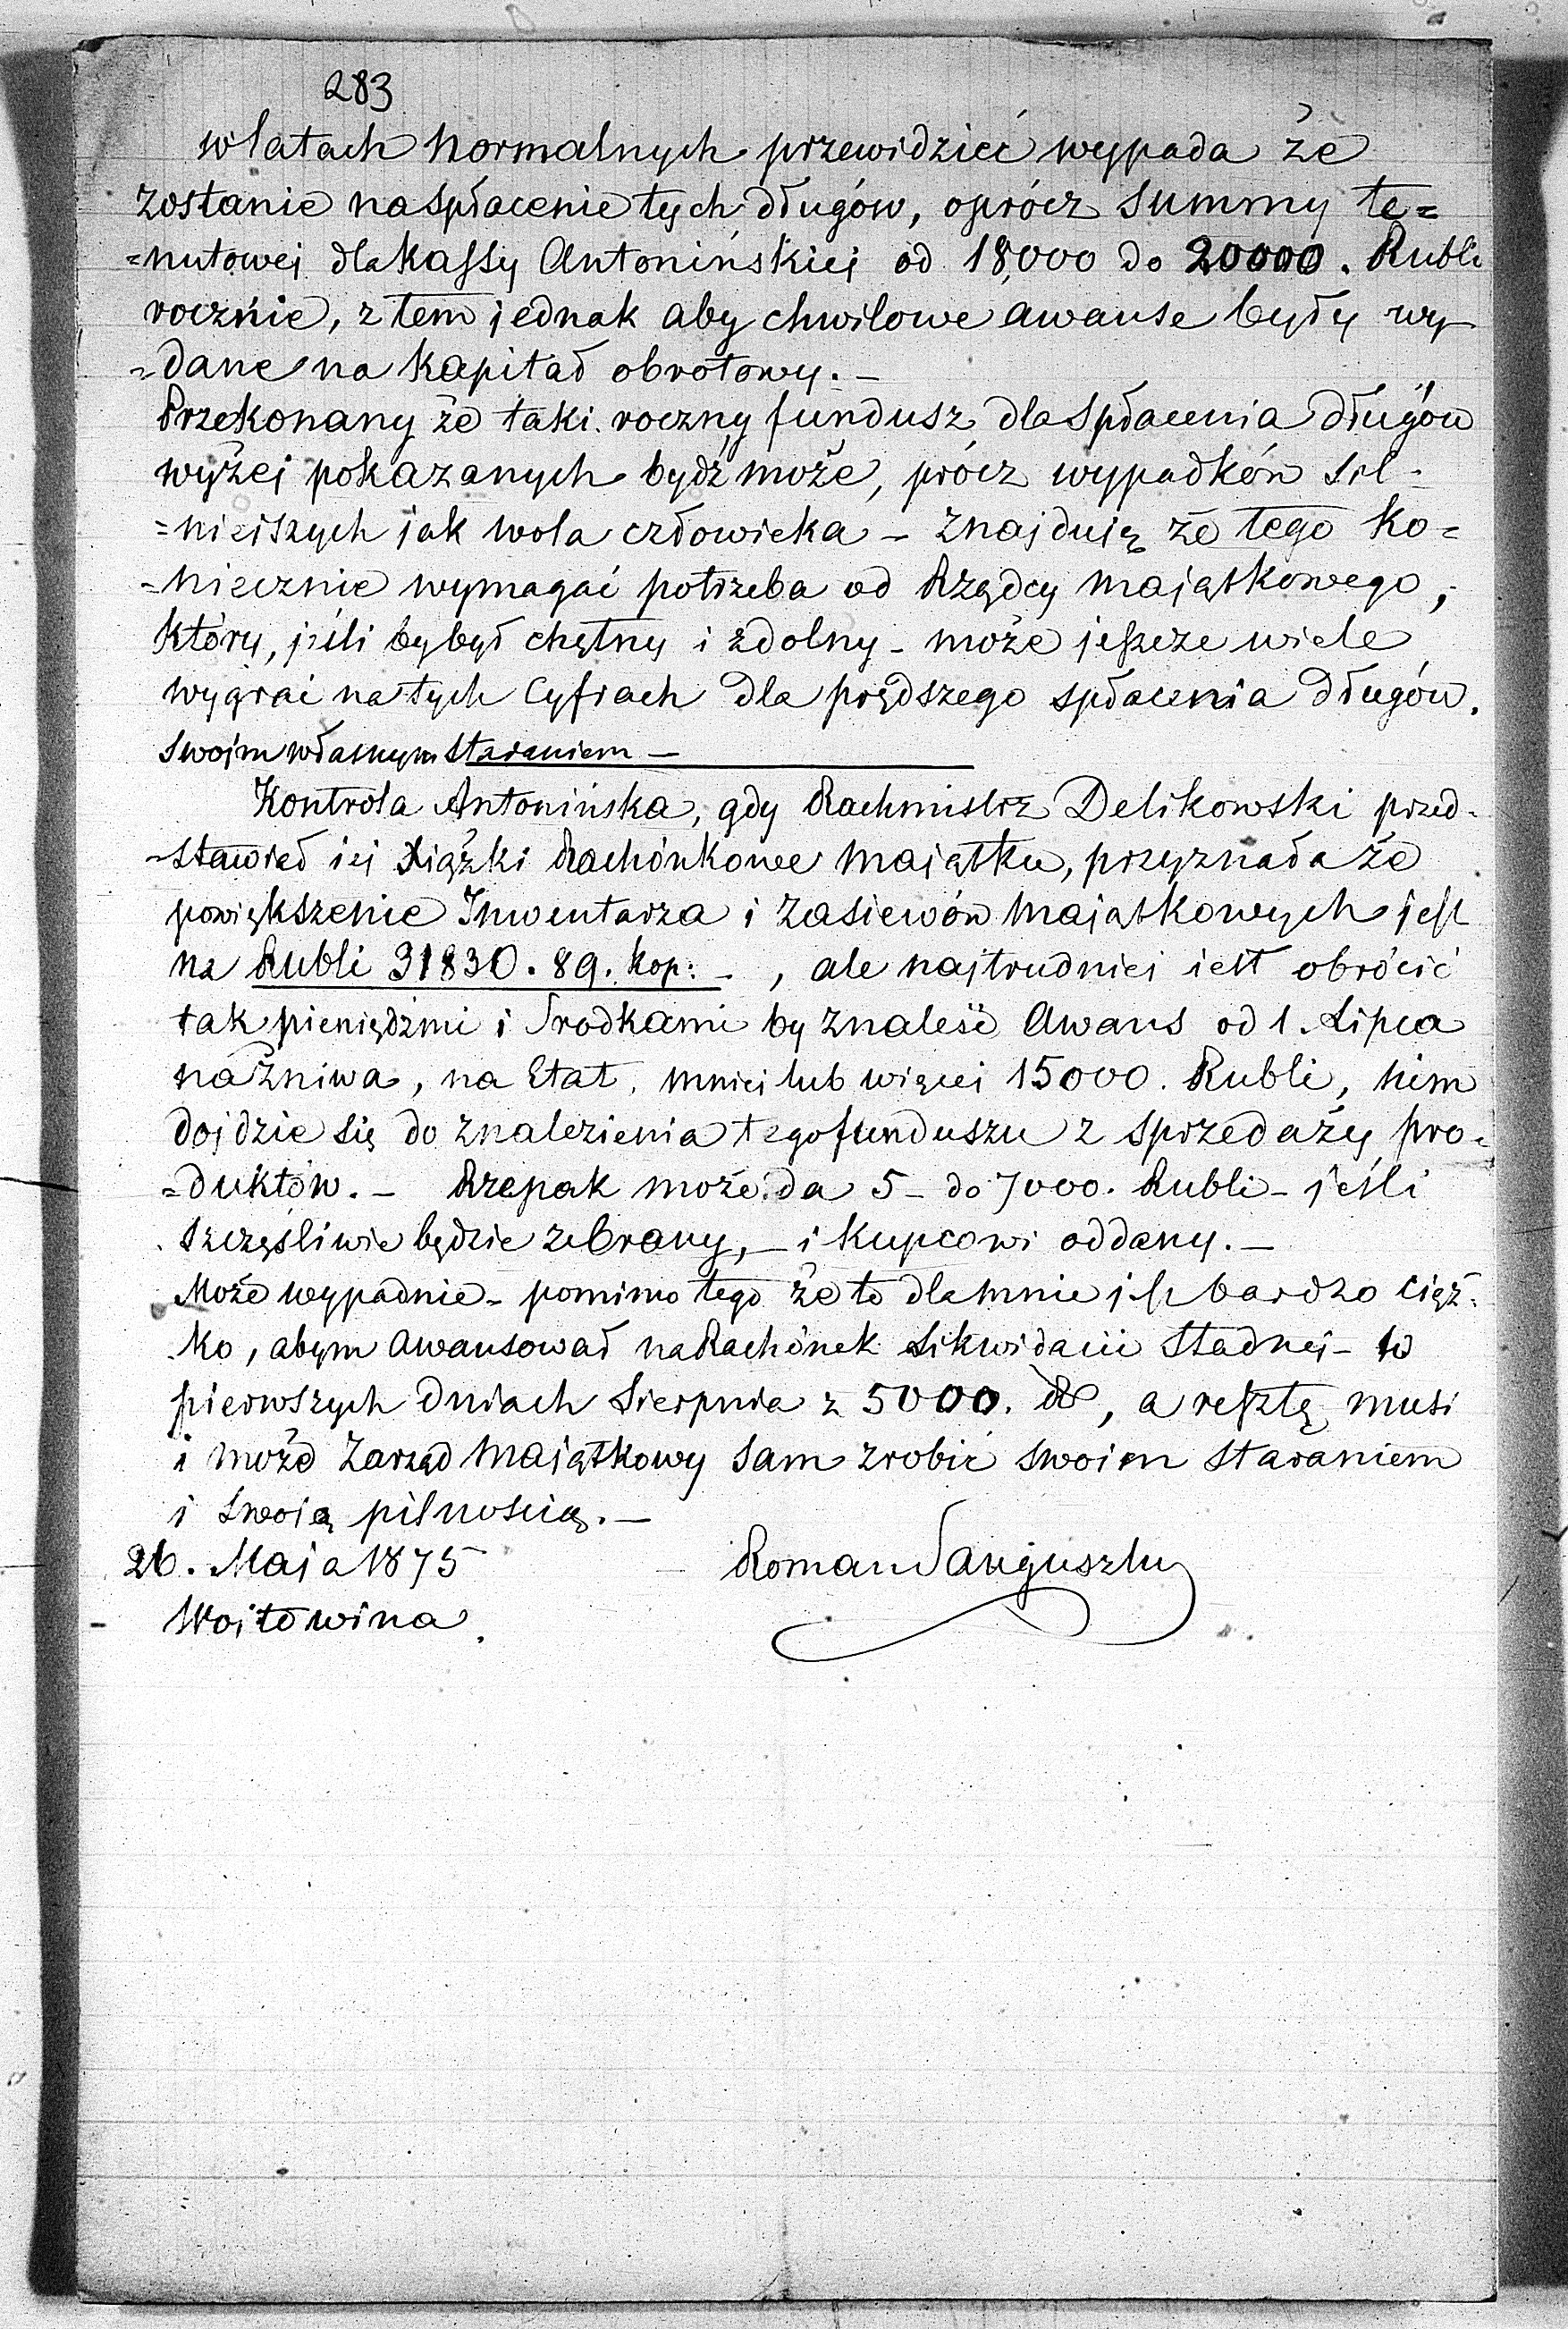 283
w latach normalnych przewidzieć wypada że
zostanie na spłacenie tych długów, oprócz summy te=
=nutowej dla kassy Antonińskiej od 18,000 do 20000. Rubli
rocznie, z tem jednak aby chwilowe awanse były wy
=dane na kapitał obrotowy. —
Przekonany że taki roczny fundusz dla spłacenia długów
wyżej pokazanych bydź może, prócz wypadków sil-
=nieiszych jak wola człowieka — znajduię że tego ko=
=niecznie wymagać potrzeba od Rządcy majątkowego,
który, jeśli by był chętny i zdolny — może jeszcze wiele
wygrać na tych Cyfrach dla prędszego spłacenia długów.
swojm własnym staraniem —
Kontrola Antonińska, gdy Rachmistrz Delikowski przed-
-stawieł iej Xiążki Rachónkowe maiątku, przyznała że
powiększenie Inwentarza i zasiewów maiątkowych jest
na Rubli 31830. 89. kop: — , ale najtrudniej iest obrócić
tak pieniędźmi i srodkami by znaleść Awans od 1. Lipca
na żniwa, na Etat, mniej lub więcej 15000. Rubli, nim
dojdzie się do znalezienia tego funduszu z sprzedaży pro=
=duktów. — Rzepak może da 5 — do 7000. Rubli — jeśli
szczęśliwie będzie zebrany, — i kupcowi oddany. —
Może wypadnie — pomimo tego że to dla mnie jest bardzo cięż-
ko, abym awansował na Rachónek Likwidacii Stadnej — w
pierwszych dniach Sierpnia z 5000. , a resztę musi
i może Zarząd maiątkowy sam zrobić swoim staraniem
i swoią pilnoscią. —
26. Maja 1875
Roman Sanguszko
Woitowina.